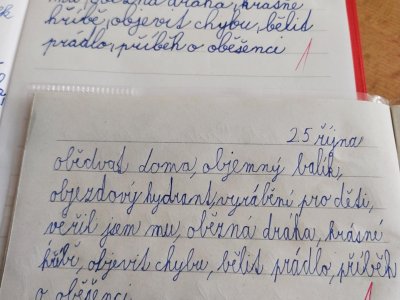 mu, oběžná dráha, krásné
hříbě, objevit chybu, bělit
prádlo, příběh o oběšenci
1
25 října
obědvat doma, objemný balík,
objezdový hydrant, vyrábění pro děti,
věřil jsem mu, oběžná dráha, krásné
hříbě, objevit chybu, bělit prádlo, příběh
o oběšenci
1